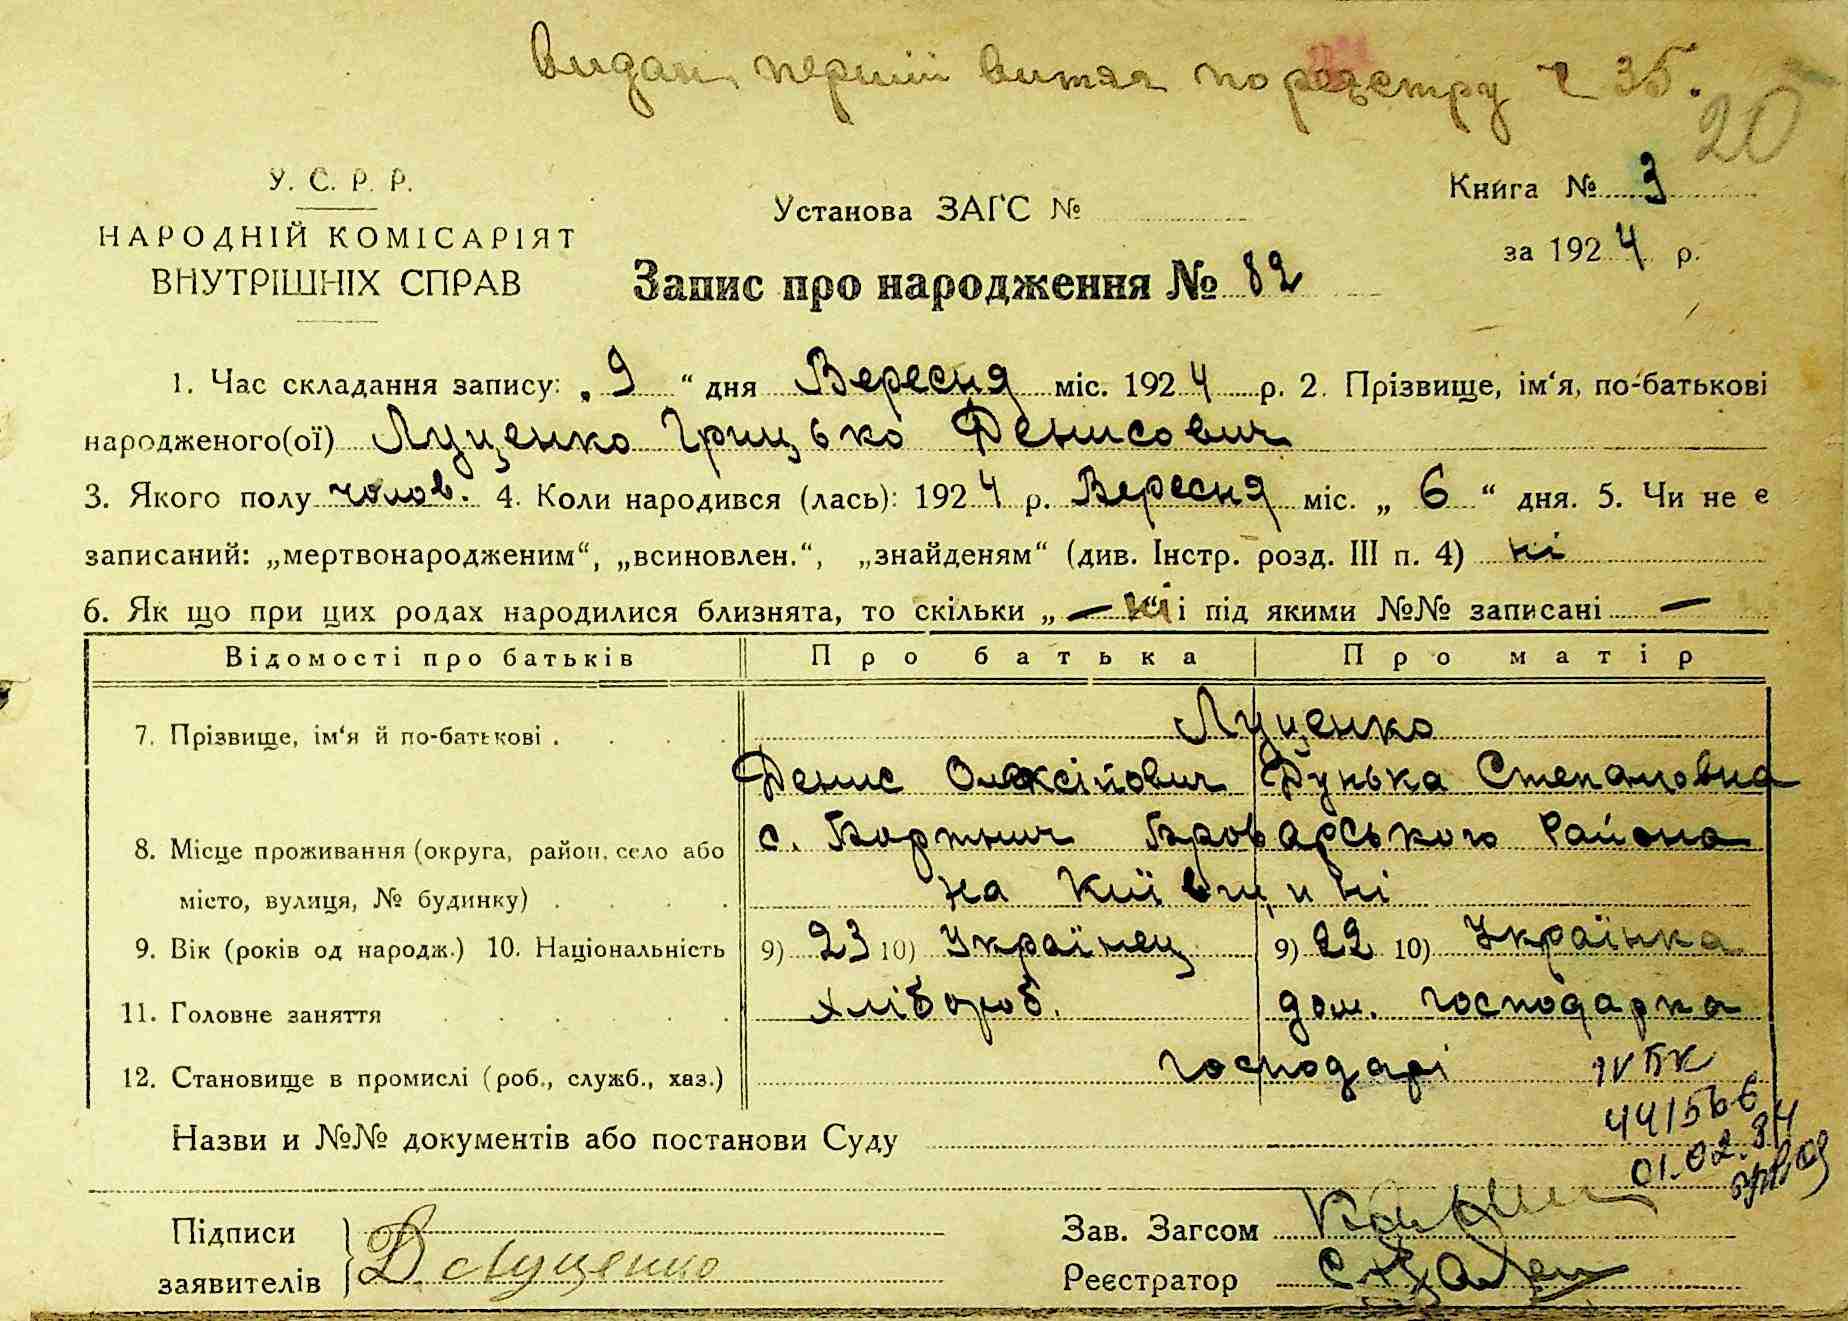 видан перший витяг по реєстру Ч 35.
20
У. С. Р. Р.
НАРОДНІЙ КОМІСАРІЯТ
ВНУТРІШНІХ СПРАВ
Установа ЗАГС №
Книга № 3
за 1924 р.
Запис про народження № 82
1. Час складання запису: „ 9 “ дня Вересня міс. 1924 р. 2. Прізвище, ім‘я, по-батькові
народженого(ої) Луценко Грицько Денисович
3. Якого полу чолов. 4. Коли народився (лась): 1924 р. Вересня міс. „ 6 “ дня. 5. Чи не є
записаний: „мертвонародженим“, „всиновлен.“, „знайденям“ (див. Інстр. розд. III п. 4) ні
6. Як що при цих родах народилися близнята, то скільки „ — ні і під якими №№ записані —
Відомості про батьків Про батька Про матір
7. Прізвище, ім‘я й по-батькові . . . . Луценко
Денис Олексійович Дунька Степановна
8. Місце проживання (округа, район, село або с. Бортнич Броварського Района
місто, вулиця, № будинку) . . . . на Київщині
9. Вік (років од народж.) 10. Національність 9) 23 10) Українец 9) 22 10) Українка
11. Головне заняття . . . . . . хлібороб. дом. господарка
12. Становище в промислі (роб., служб., хаз.) господарі
IV БК
441566
01.02.84
Назви и №№ документів або постанови Суду
Підписи
заявителів Д Луценко
Зав. Загсом
Реєстратор